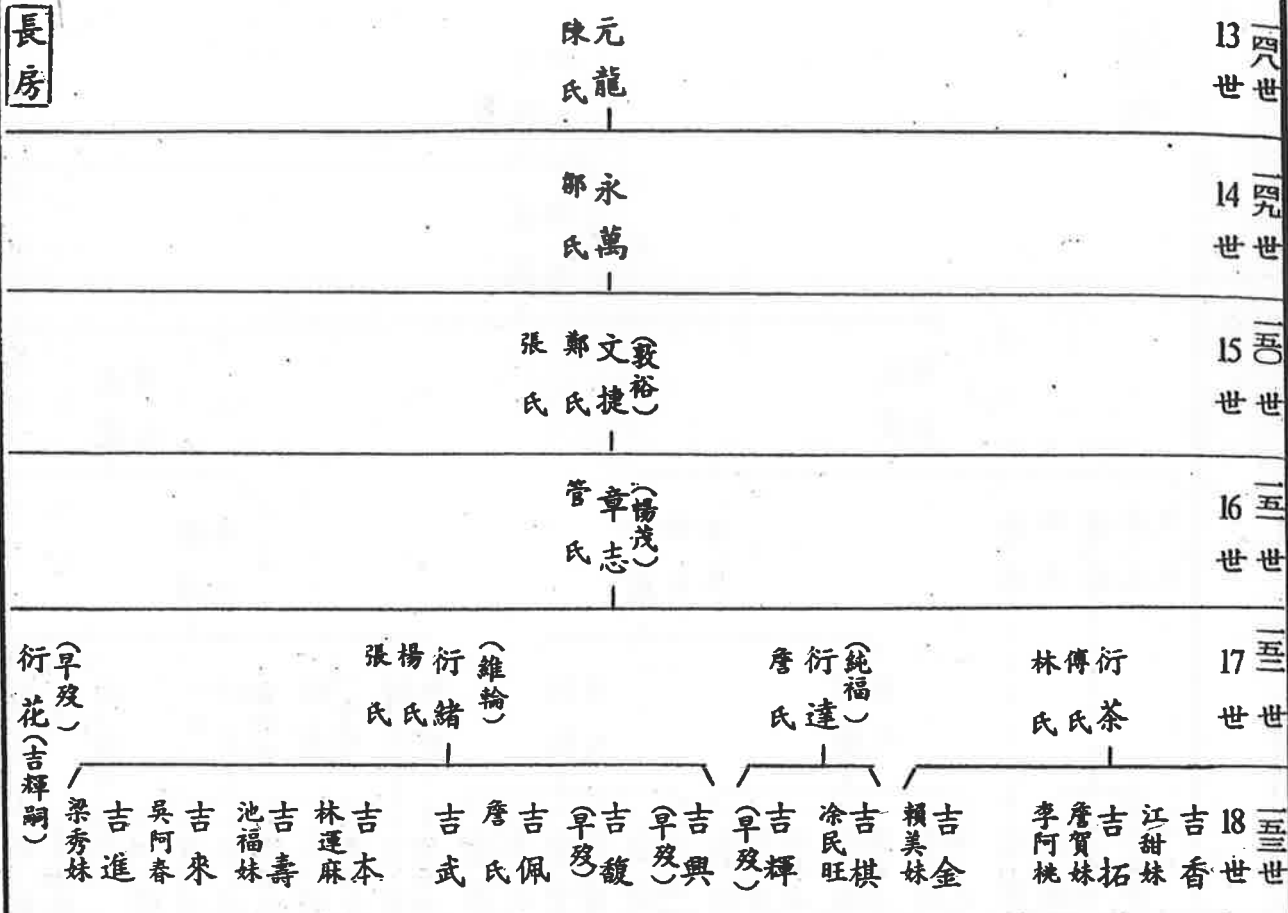 長房
13世 一四八世
元龍
陳氏
14世 一四九世
永萬
鄒氏
15世 一五〇世
(敦裕)
文捷
鄭氏
張氏
16世 一五一世
(暢茂)
章志
管氏
17世 一五二世
衍茶
傅氏
林氏
(純福)
衍達
詹氏
(維輪)
衍緒
楊氏
張氏
(早歿)
衍花(吉輝嗣)
18世 一五三世
吉香
江甜妹
吉拓
詹賀妹
李阿桃
吉金
賴美妹
吉棋
凃民旺
吉輝
(早歿)
吉興
(早歿)
吉馥
(早歿)
吉佩
詹氏
吉武
吉本
林運麻
吉壽
池福妹
吉來
吳阿春
吉進
梁秀妹